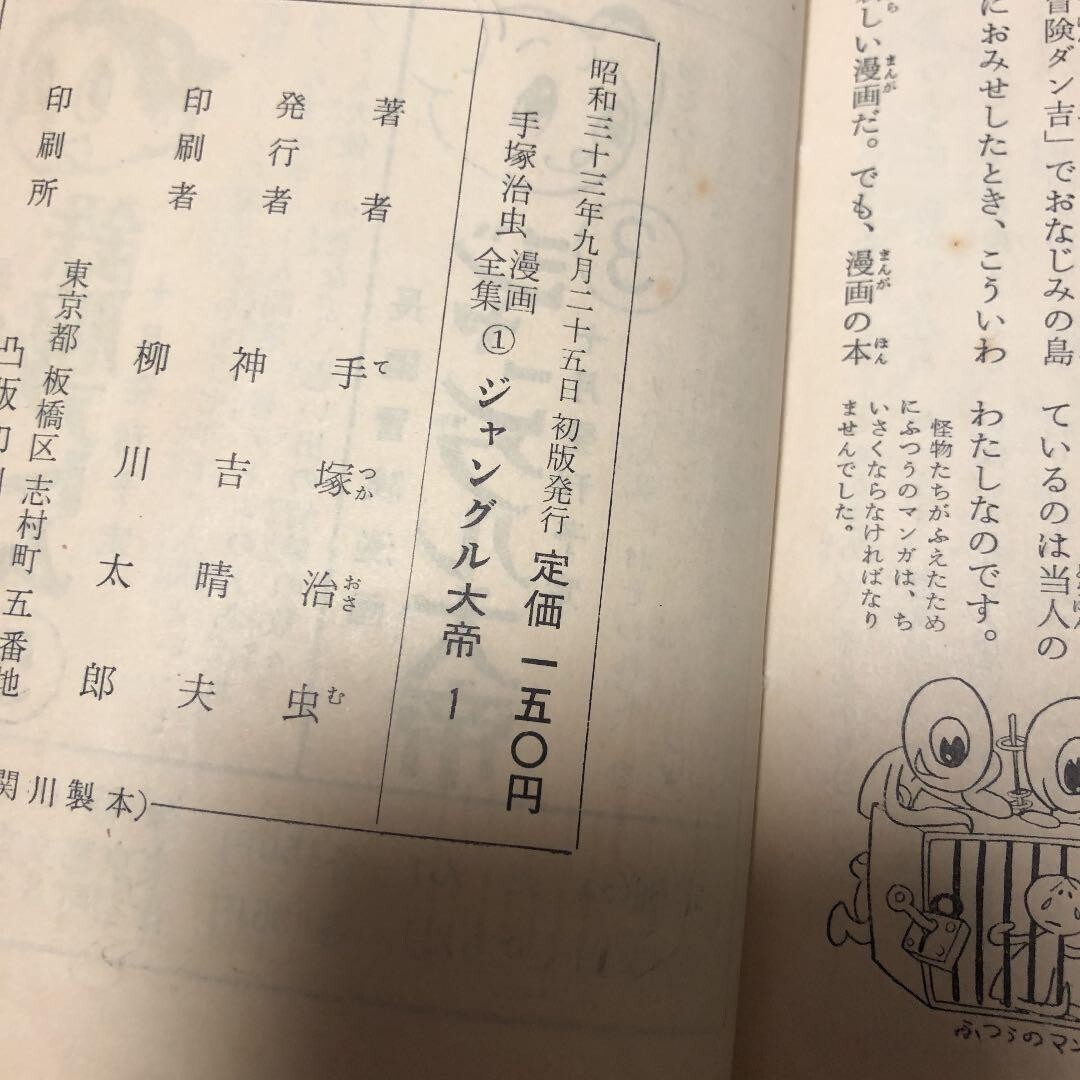 冒険ダン吉」でおなじみの島
におみせしたとき、こういわ
しい漫画だ。でも、漫画の本
まんが
まんが
ほん
ているのは当人の
わたしなのです。
怪物たちがふえたため
にふつうのマンガは、ち
いさくならなければなり
ませんでした。
ふつうのマン
昭和三十三年九月二十五日 初版発行 定価 一五〇円
手塚治虫 漫画全集 ① ジャングル大帝 1
著者 手塚治虫
て つか おさ む
発行者 神吉晴夫
印刷者 柳川太郎
印刷所 東京都板橋区志村町五番地
凸版印刷
関川製本)